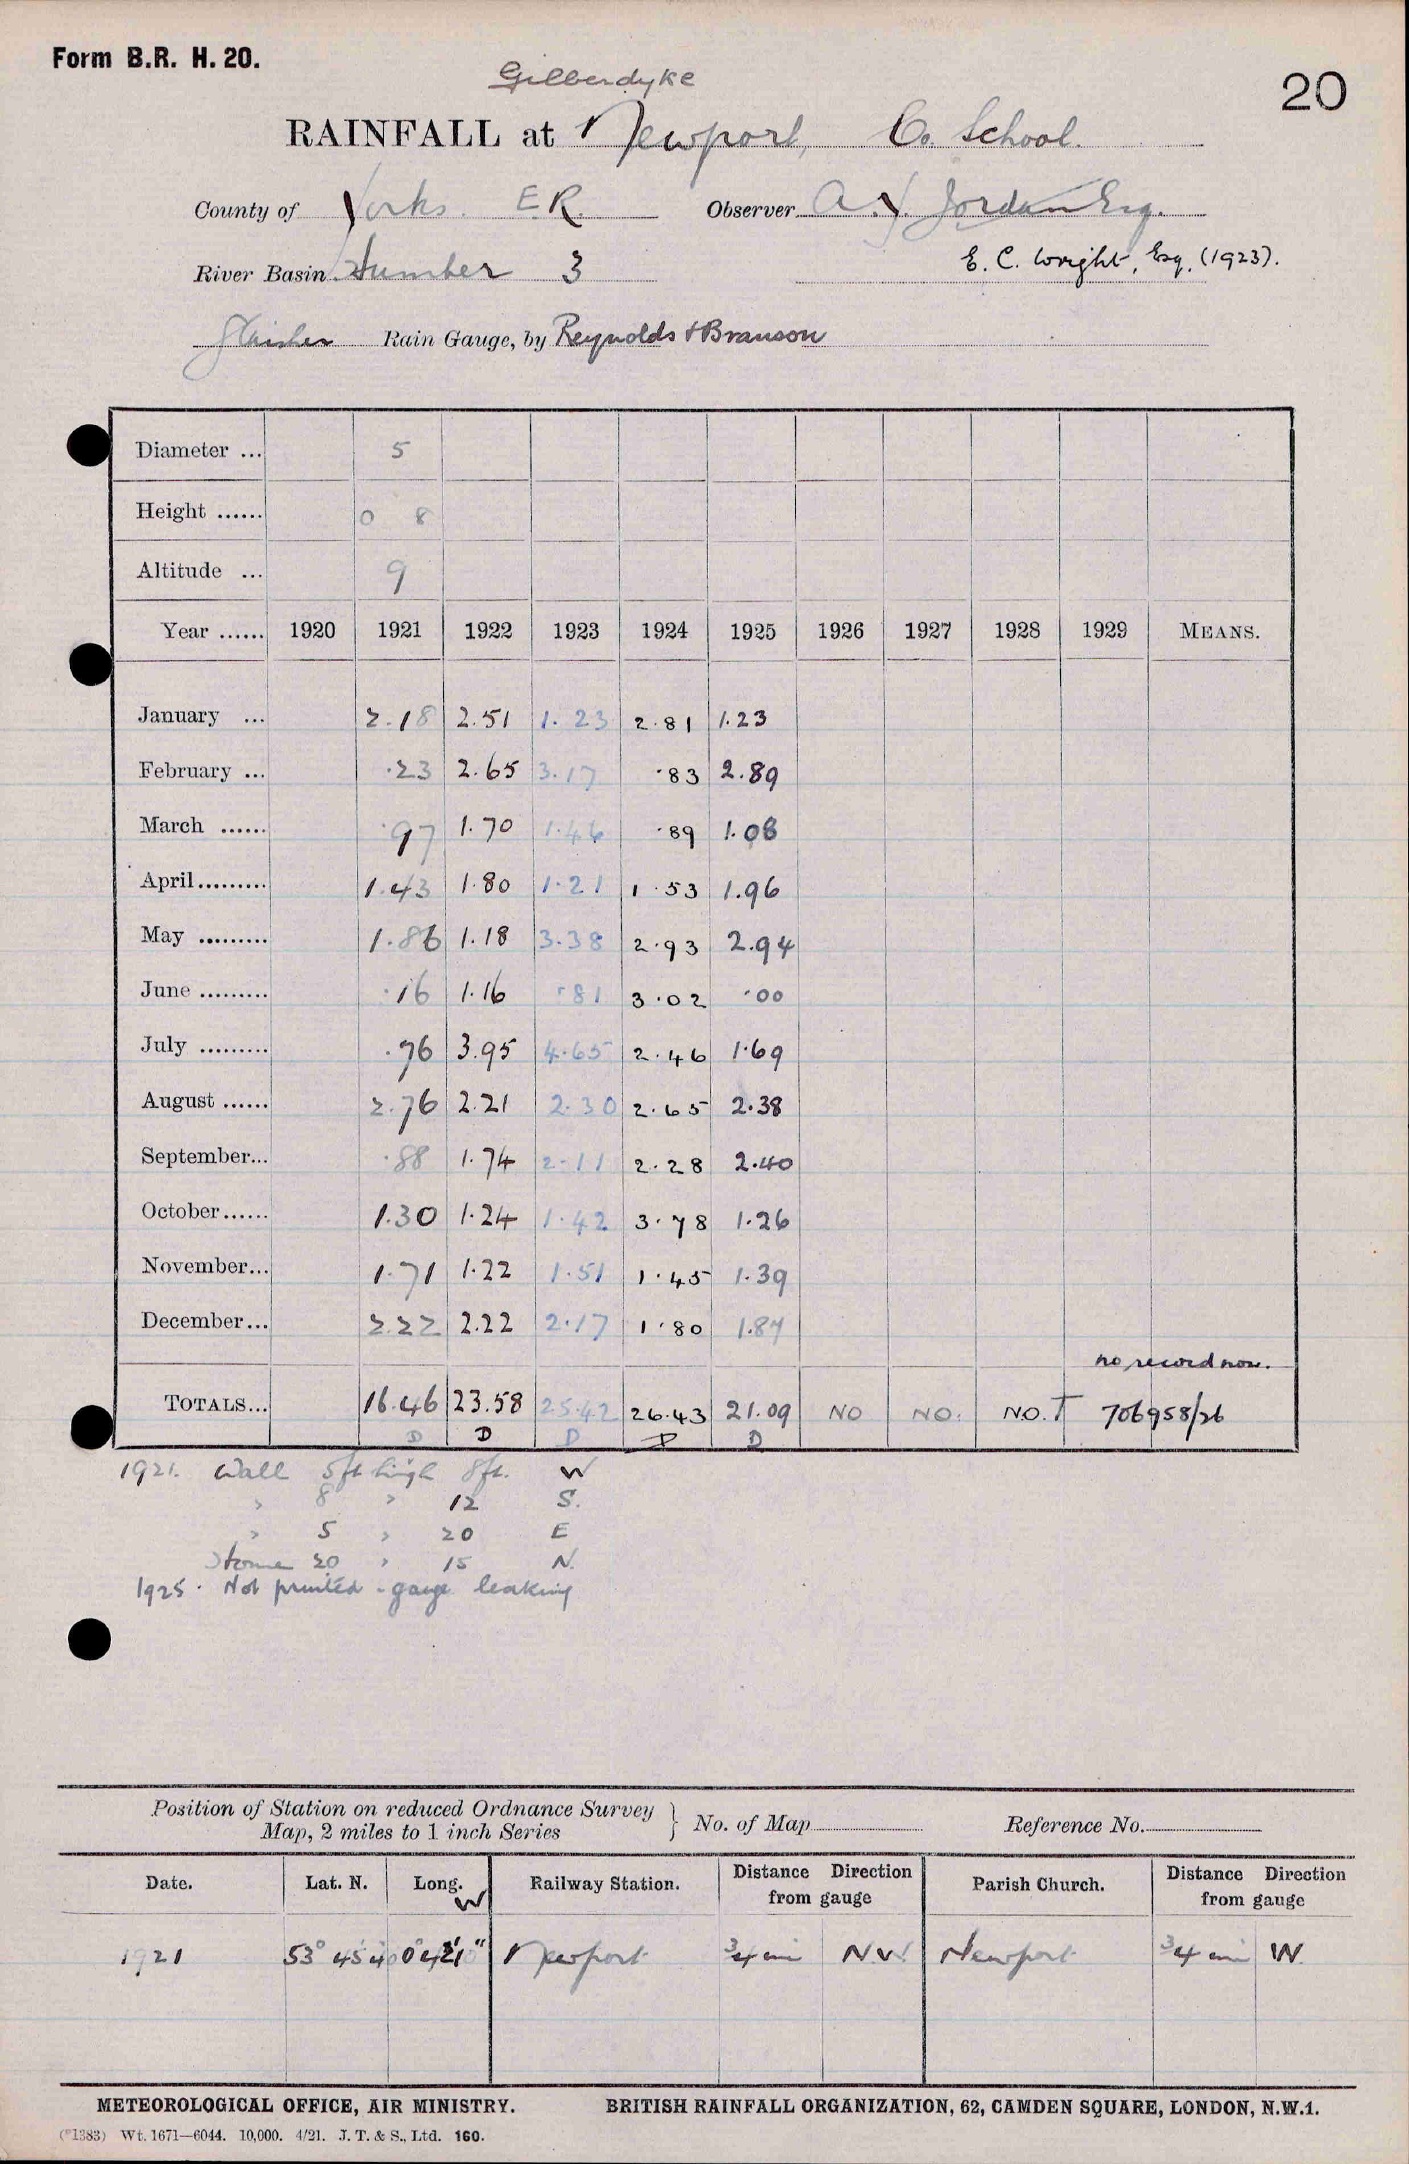 Form B.R. H. 20.
20
Gilberdyke
RAINFALL at Newport, Co. School.
County of Yorks. E.R. Observer A. J. Jordan Esq.
River Basin Humber 3 E. C. Wright, Esq. (1923).
Glaisher Rain Gauge, by Reynolds & Branson
Diameter ... 5
Height ...... 0 8
Altitude ... 9
Year ...... 1920 1921 1922 1923 1924 1925 1926 1927 1928 1929 MEANS.
January ... 2.18 2.51 1.23 2.81 1.23
February ... .23 2.65 3.17 .83 2.89
March ...... .97 1.70 1.46 .89 1.08
April......... 1.43 1.80 1.21 1.53 1.96
May ......... 1.86 1.18 3.38 2.93 2.94
June ......... .16 1.16 .81 3.02 .00
July ......... .76 3.95 4.65 2.46 1.69
August ...... 2.76 2.21 2.30 2.65 2.38
September... .88 1.74 2.11 2.28 2.40
October...... 1.30 1.24 1.42 3.78 1.26
November... 1.71 1.22 1.51 1.45 1.39
December... 2.22 2.22 2.17 1.80 1.87
no record now.
TOTALS... 16.46 23.58 25.42 26.43 21.09 NO NO. NO.T 706958/26
D D D D D
1921. Wall 5ft high 8ft. W
" 8 " 12 S.
" 5 " 20 E
20 " 15 N.
1925. Not printed - gauge leaking
Position of Station on reduced Ordnance Survey
Map, 2 miles to 1 inch Series } No. of Map Reference No.
Date. Lat. N. Long. W Railway Station. Distance Direction from gauge Parish Church. Distance Direction from gauge
1921 53° 45 Newport ¾ mi N.W. Newport ¾ mi W.
METEOROLOGICAL OFFICE, AIR MINISTRY. BRITISH RAINFALL ORGANIZATION, 62, CAMDEN SQUARE, LONDON, N.W.1.
(*1383) Wt. 1671—6044. 10,000. 4/21. J. T. & S., Ltd. 160.